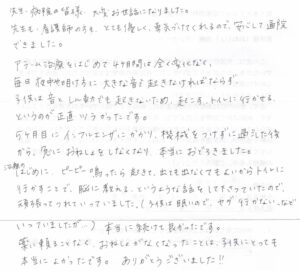 先生、病院の皆様、大変お世話になりました。
先生も、看護師の方も、とても優しく、勇気づけてくれるので、安心して通院
できました。
アラーム治療をはじめて4ヶ月間は全く変化なく、
毎日夜中や明け方に大きな音で起きなければならず、
子供は音としん動でも起きないため、起こす、トイレに行かせる、
というのが正直つらかったです。
5ヶ月目にインフルエンザにかかり、機械をつけずに過ごした後
から、急におねしょをしなくなり、本当におどろきました。
治療のはじめに、ピーピー鳴ったら起きて、出ても出なくてもよいからトイレに
行かすことで、脳に教える、というような話をして下さっていたので、
頑張ってつれていっていました。(子供は眠いので、ヤダ 行かない、など
いっていましたが…) 本当に続けて良かったです。
薬に頼ることなく、おねしょがなくなったことは、子供にとっても
本当によかったです。ありがとうございました!!